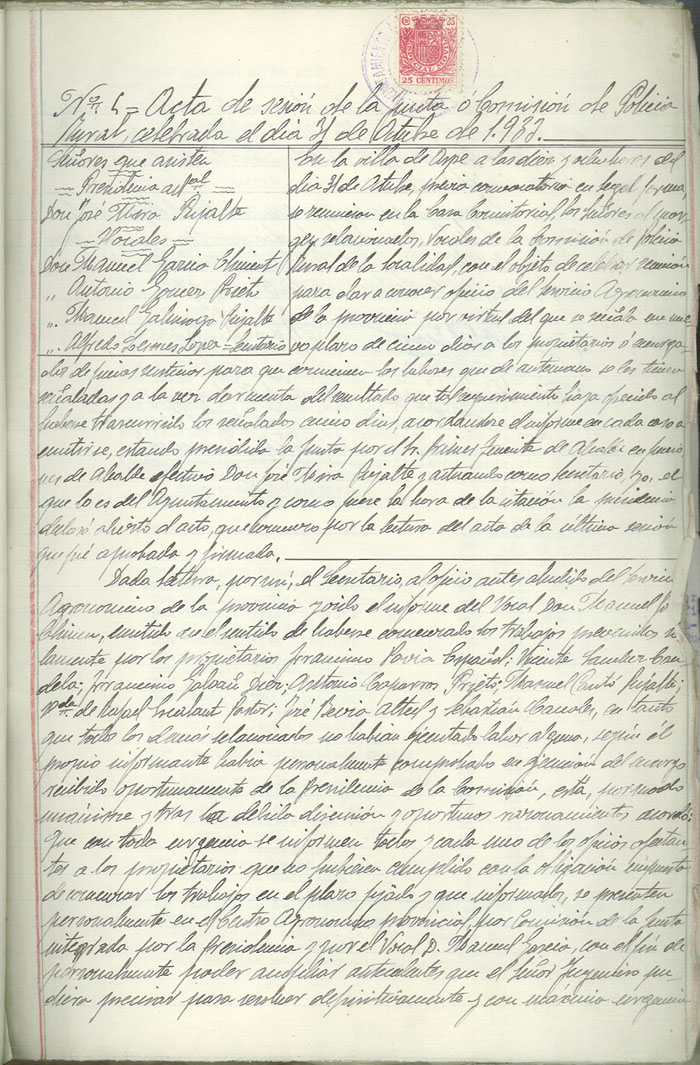 25 CENTIMOS
Nº 5 = Acta de sesión de la Junta o Comisión de Policia
Rural, celebrada el dia 31 de Octubre de 1.933.
Señores que asisten
Presidencia
Don José Mira Pujalte
Vocales
Don Manuel Garcia Chinent
" Antonio Gomez Prieto
" Manuel Galinsoga Pujalte
" Alfredo Lesmes Lopez = Secretario
En la villa de Aspe a las diez y ocho horas del
dia 31 de Octubre, previa convocatoria en legal forma,
se reunieron en la Casa Consistorial, los Señores al
relacionados, Vocales de la Comisión de Policia
Rural de la localidad, con el objeto de celebrar reunión
para dar a conocer oficio del Servicio Agronomico
de la provincia por virtud del que se señala un nue-
vo plazo de cinco dias a los propietarios ó encarga-
dos de para que comiencen las labores que de antemano se les tienen
señaladas y a la vez dar cuenta del resultado que tal requerimiento haya ofrecido al
haberse transcurrido los señalados cinco dias, acordandose el informe en cada caso a
emitirse, estando presidida la Junta por el Sr. primer Teniente de Alcalde en funcio-
nes de Alcalde efectivo Don José Mira Pujalte y actuando como Secretario, yo, el
que lo es del Ayuntamiento y como fuese la hora de la citación la presidencia
declaró abierto el acto, que comenzo por la lectura del acta de la última sesión
que fué aprobada y firmada.
Dada lectura, por mi, el Secretario, al oficio antes aludido del Servicio
Agronomico de la provincia y oido el informe del Vocal Don Manuel
emitido en el sentido de haberse comenzado los trabajos prevenidos so-
lamente por los propietarios Gerónimo Pavia Español; Vicente Sanchez Can-
dela; Galvañ Antonio Caparros Prieto; Manuel Cantó Pujalte;
Vda de Rafael Pastor; José Pavia Altet y Sebastián en tanto
que todos los demás relacionados no habian ejecutado labor alguna, según él
propio informante habia personalmente comprobado en ejecución del encargo
recibido oportunamente de la Presidencia de la Comisión, está, por modo
unánime y tras la debida discusión y oportunos razonamientos acordó:
Que con toda urgencia se informen todos y cada uno de los oficios
a los propietarios que no hubieren cumplido con la obligación impuesta
de comenzar los trabajos en el plazo fijado y que informados, se presenten
personalmente en el Centro Agronomico provincial, por Comisión de la Junta
integrada por la Presidencia y por el Vocal D. Manuel Garcia, con el fin de
personalmente poder ampliar antecedentes que el Señor Ingeniero pu-
diera precisar para resolver definitivamente y con máxima urgencia